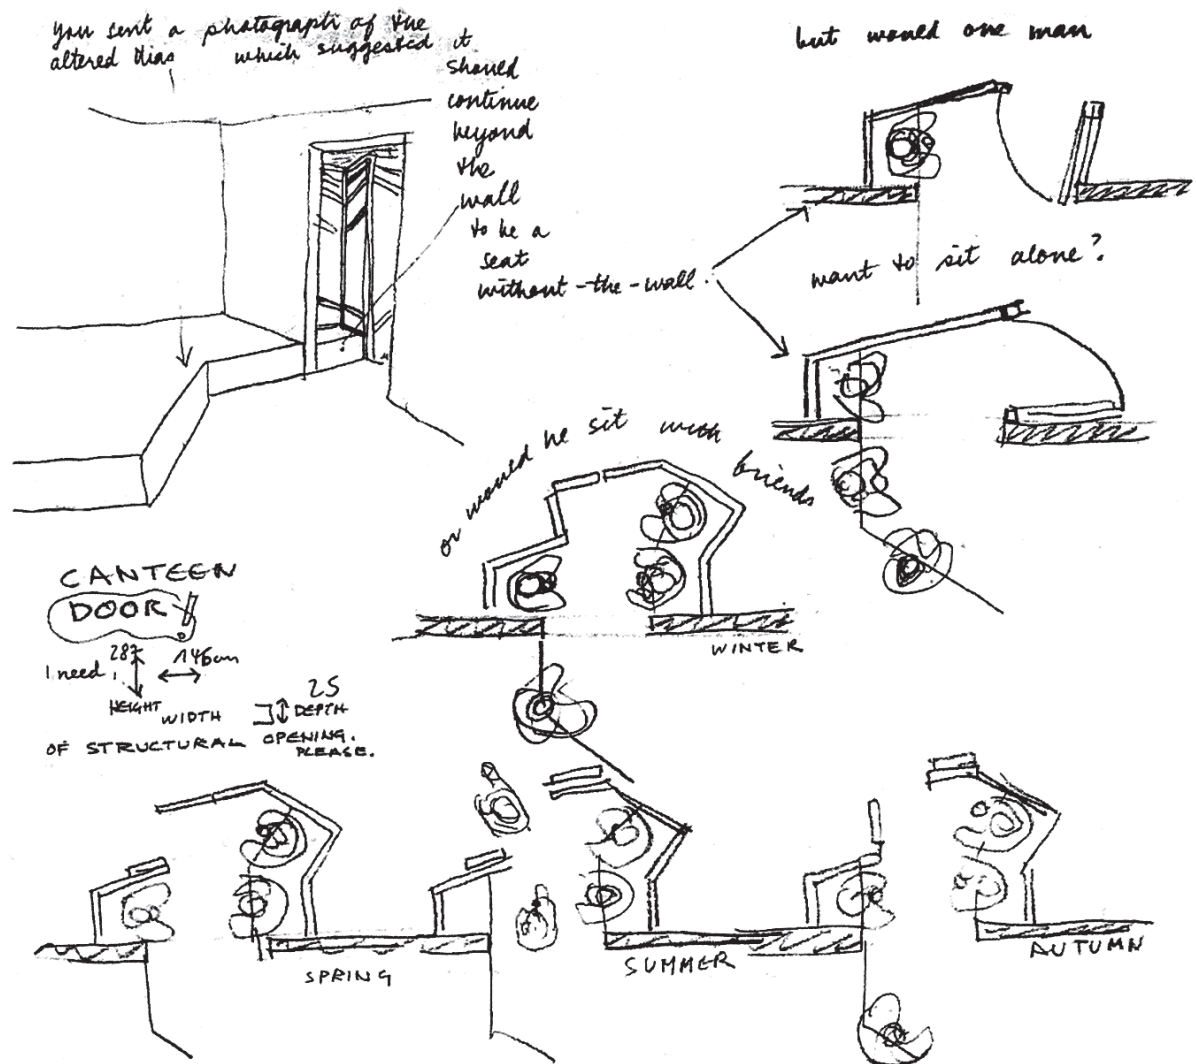 you sent a photograph of the
altered dias which suggested it
should
continue
beyond
the
wall
to be a
seat
without-the-wall.
but would one man
want to sit alone?
or would he sit with friends
CANTEEN
DOOR
I need,
287
146cm
HEIGHT
WIDTH
25
DEPTH
OF STRUCTURAL OPENING.
PLEASE.
WINTER
SPRING
SUMMER
AUTUMN